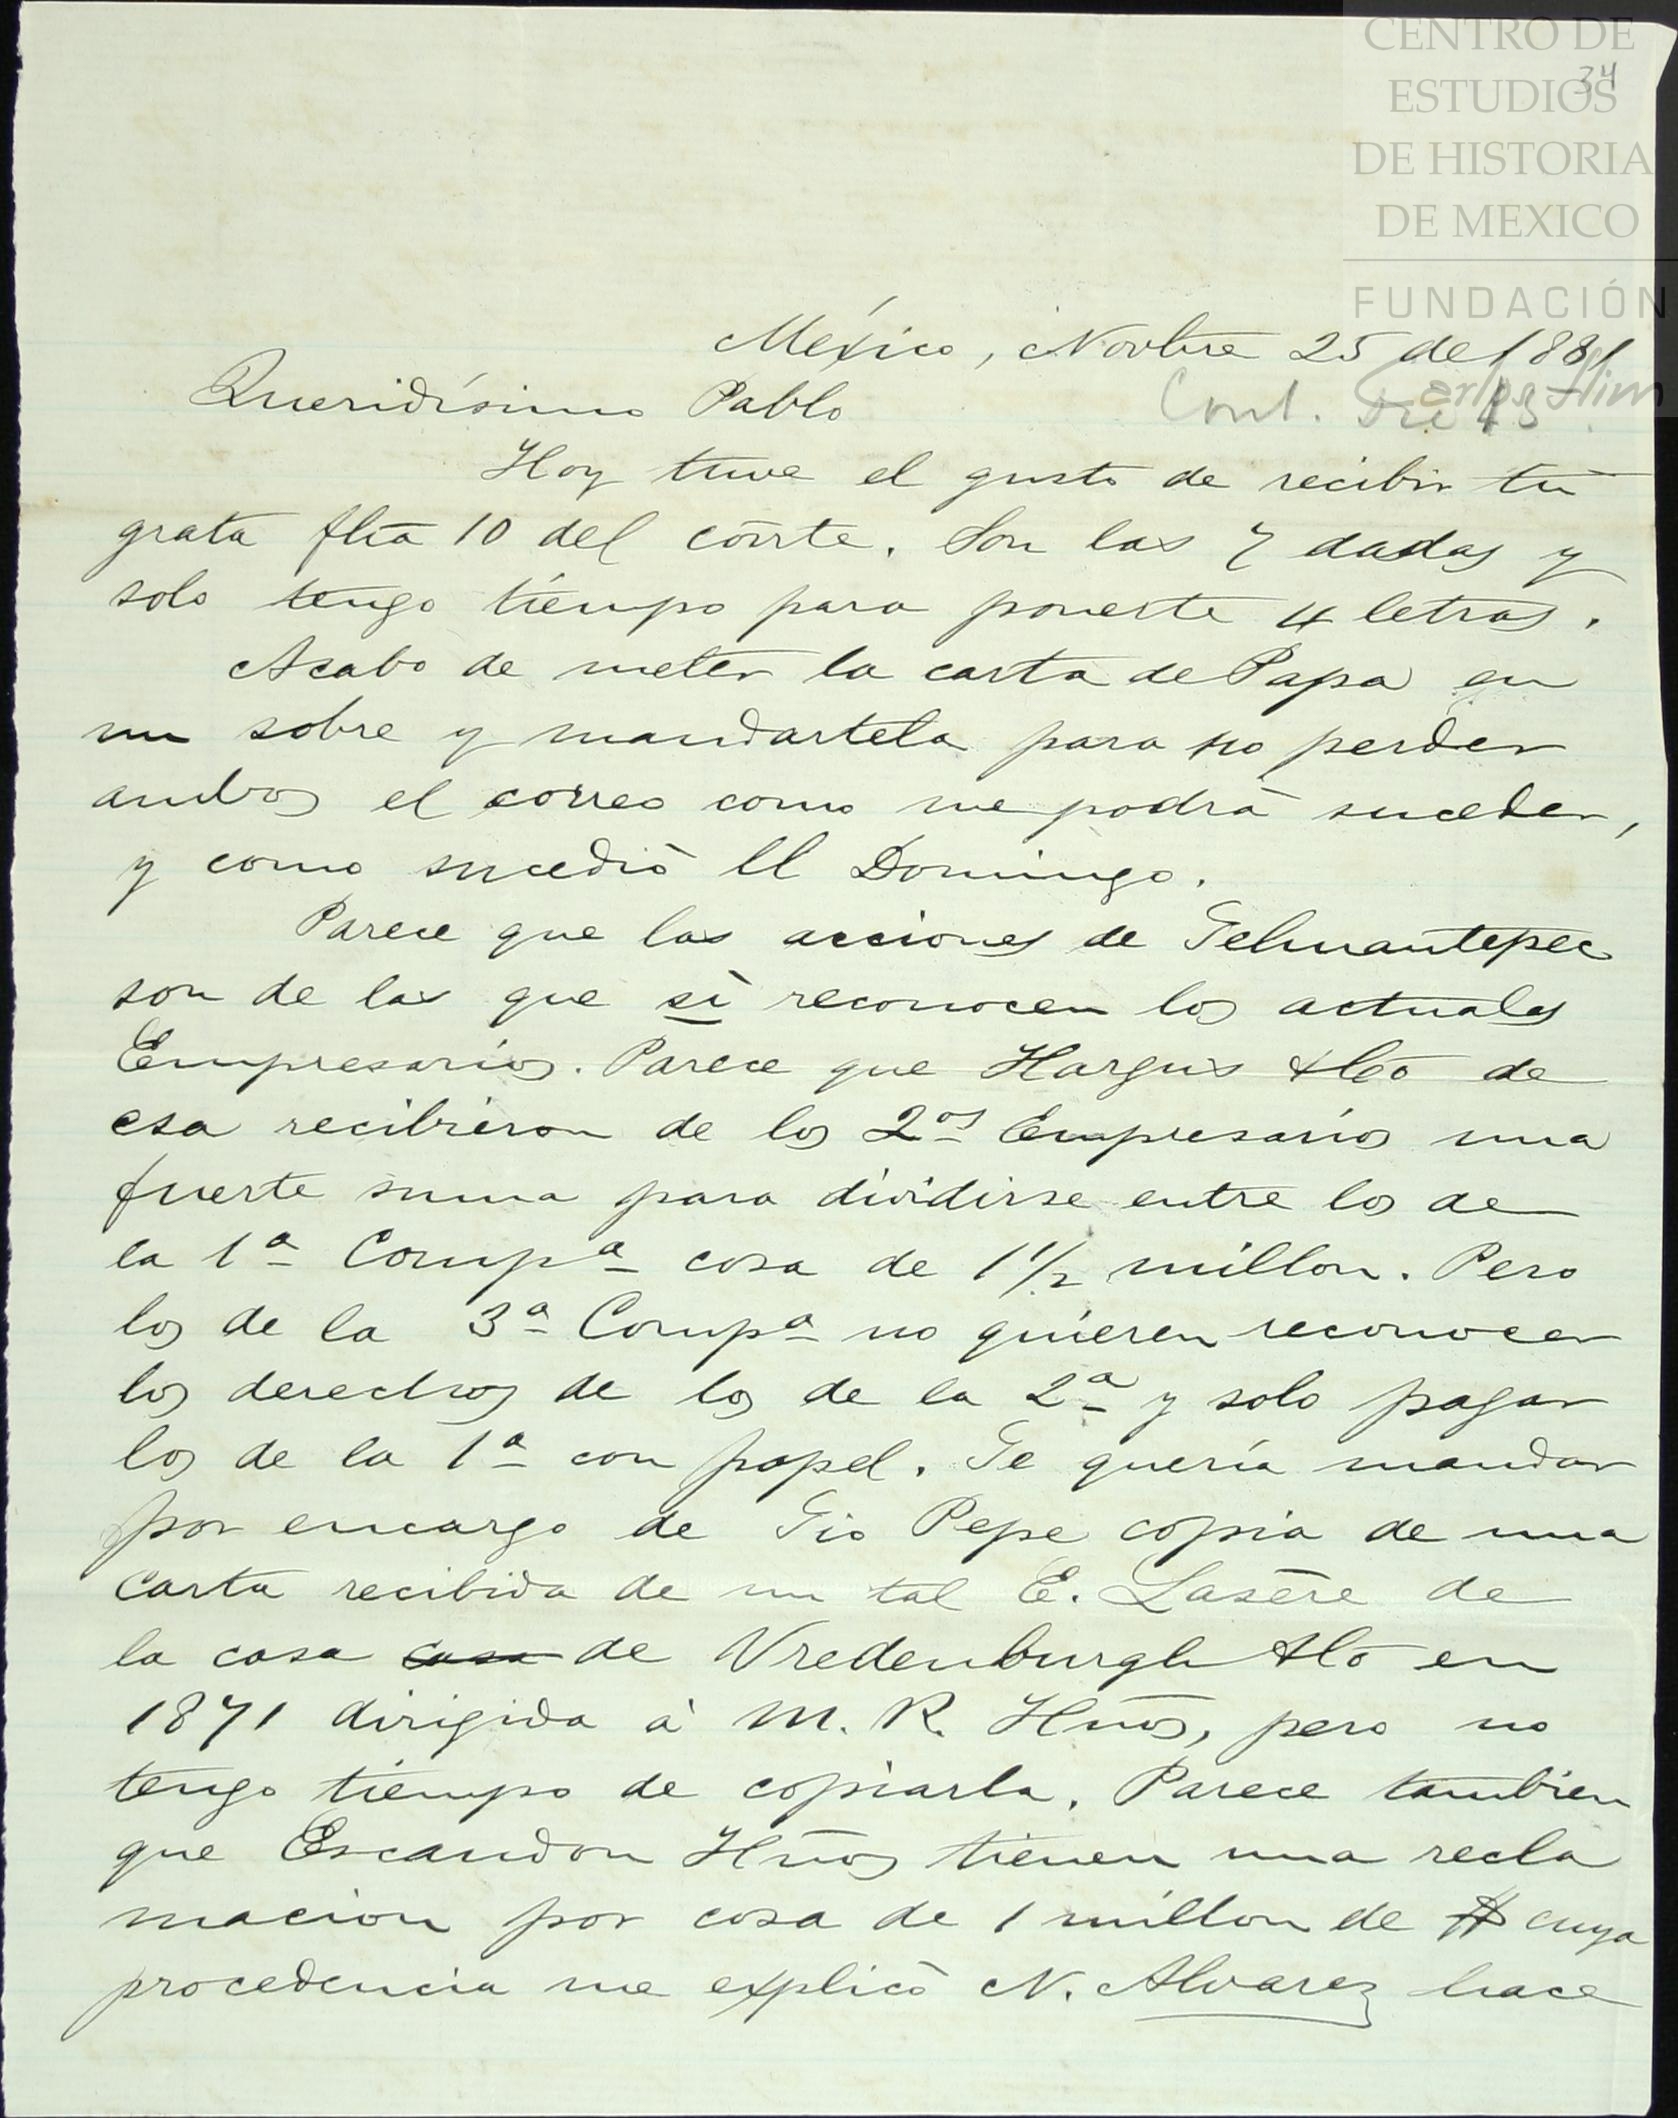 CENTRO DE
34
ESTUDIOS
DE HISTORIA
DE MEXICO
FUNDACIÓN
Carlos Slim
México, Novbre 25 de 1881
Queridísimo Pablo
Cont. Dic 13
Hoy tuve el gusto de recibir tu
grata fha 10 del corrte. Son las 7 dadas y
solo tengo tiempo para ponerte 4 letras.
Acabo de meter la carta de Papa en
un sobre y mandartela para no perder
ambos el correo como me podrá suceder,
y como sucedió el Domingo.
Parece que las acciones de Tehuantepec
son de las que sì reconocen los actuales
Empresarios. Parece que Hargus &Co de
esa recibieron de los 2os Empresarios una
fuerte suma para dividirse entre los de
la 1a Compa cosa de 1 1/2 millon. Pero
los de la 3a Compa no quieren reconocer
los derechos de los de la 2a y solo pagar
los de la 1a con papel. Te quería mandar
por encargo de Tio Pepe copia de una
carta recibida de un tal E. Lasère de
la casa casa de Vredenburgh &Co en
1871 dirigida à M. R. Hnos, pero no
tengo tiempo de copiarla. Parece tambien
que Escandon Hnos tienen una recla
macion por cosa de 1 millon de $ cuya
procedencia me explicó N. Alvarez hace